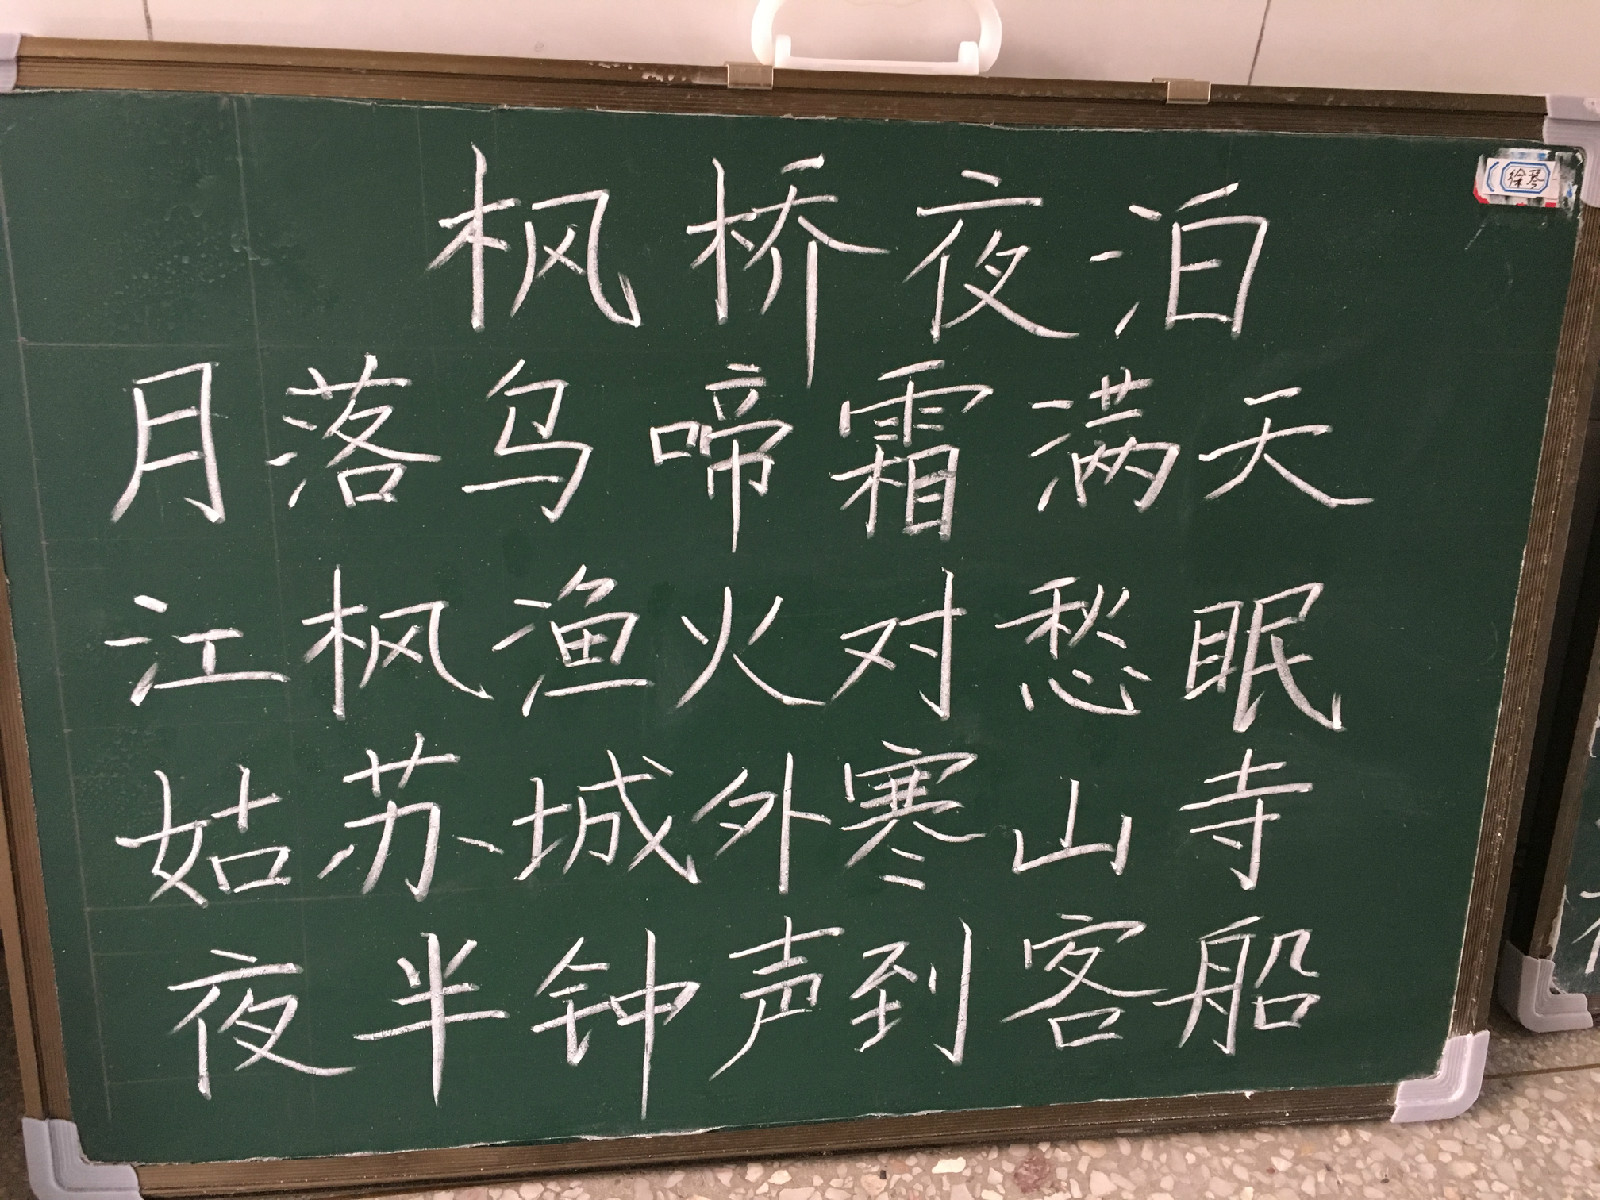 枫桥夜泊
徐琴
月落乌啼霜满天
江枫渔火对愁眠
姑苏城外寒山寺
夜半钟声到客船